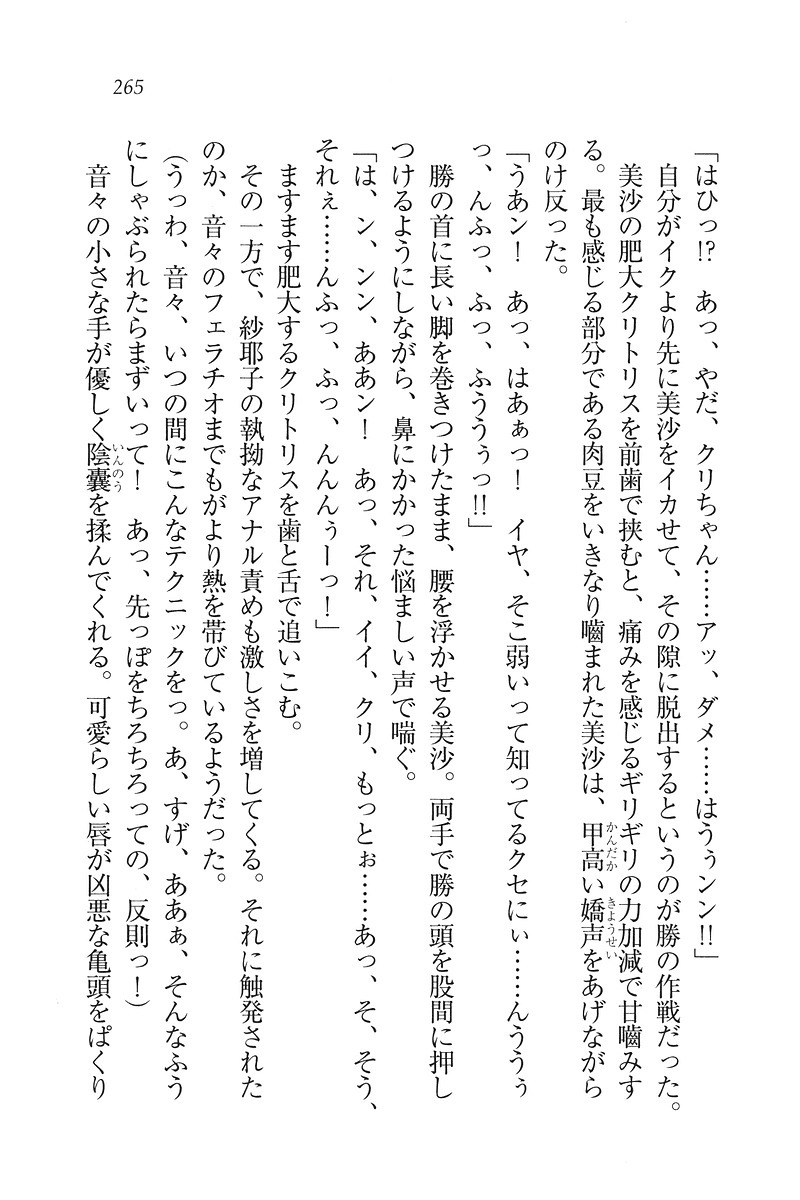 265
「はひっ!?　あっ、やだ、クリちゃん……アッ、ダメ……はうぅンン!!」
自分がイクより先に美沙をイカせて、その隙に脱出するというのが勝の作戦だった。
美沙の肥大クリトリスを前歯で挟むと、痛みを感じるギリギリの力加減で甘嚙みす
る。最も感じる部分である肉豆をいきなり嚙まれた美沙は、甲高い嬌声をあげながら
のけ反った。
「うあン！　あっ、はあぁっ！　イヤ、そこ弱いって知ってるクセにぃ……んううぅ
っ、んふっ、ふっ、ふううぅっ!!」
勝の首に長い脚を巻きつけたまま、腰を浮かせる美沙。両手で勝の頭を股間に押し
つけるようにしながら、鼻にかかった悩ましい声で喘ぐ。
「は、ン、ンン、ああン！　あっ、それ、イイ、クリ、もっとぉ……あっ、そ、そう、
それぇ……んふっ、ふっ、んんんぅーっ！」
ますます肥大するクリトリスを歯と舌で追いこむ。
その一方で、紗耶子の執拗なアナル責めも激しさを増してくる。それに触発された
のか、音々のフェラチオまでもがより熱を帯びているようだった。
（うっわ、音々、いつの間にこんなテクニックをっ。あ、すげ、ああぁ、そんなふう
にしゃぶられたらまずいって！　あっ、先っぽをちろちろっての、反則っ！）
音々の小さな手が優しく陰囊を揉んでくれる。可愛らしい唇が凶悪な亀頭をぱくり